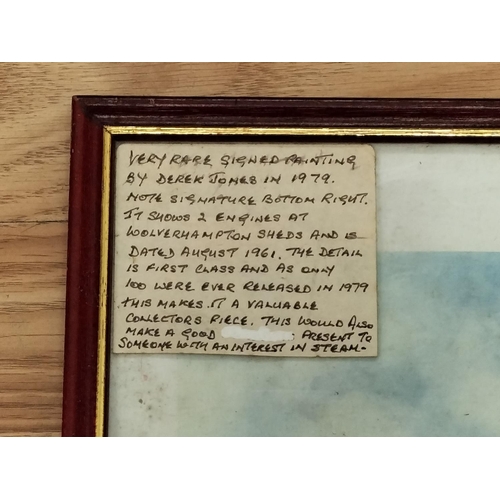 VERY RARE SIGNED PAINTING
BY DEREK JONES IN 1979.
NOTE SIGNATURE BOTTOM RIGHT.
IT SHOWS 2 ENGINES AT
WOLVERHAMPTON SHEDS AND IS
DATED AUGUST 1961. THE DETAIL
IS FIRST CLASS AND AS ONLY
100 WERE EVER RELEASED IN 1979
THIS MAKES IT A VALUABLE
COLLECTORS PIECE. THIS WOULD ALSO
MAKE A GOOD PRESENT TO
SOMEONE WITH AN INTEREST IN STEAM.